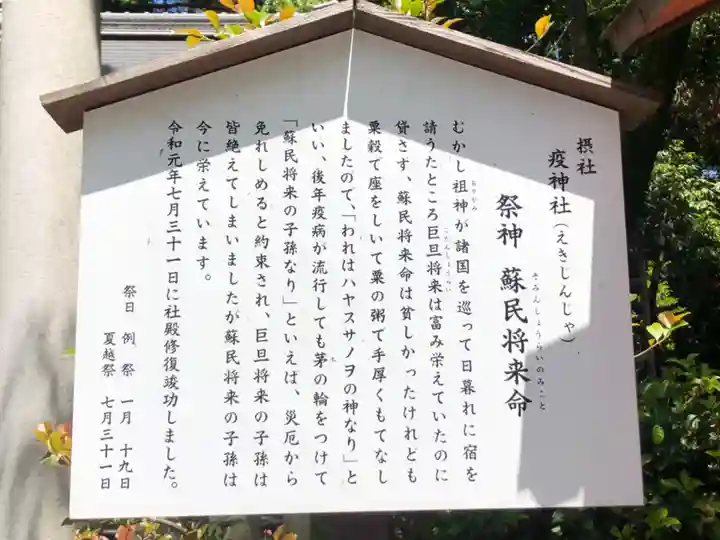 摂社
疫神社(えきじんじゃ)
祭神 蘇民将来命
そみんしょうらいのみこと
むかし祖神が諸国を巡って日暮れに宿を
おやがみ
請うたところ巨旦将来は富み栄えていたのに
こたんしょうらい
貸さず、蘇民将来命は貧しかったけれども
粟穀で座をしいて粟の粥で手厚くもてなし
ましたので、「われはハヤスサノヲの神なり」と
いい、後年疫病が流行しても茅の輪をつけて
ち
「蘇民将来の子孫なり」といえば、災厄から
免れしめると約束され、巨旦将来の子孫は
皆絶えてしまいましたが蘇民将来の子孫は
今に栄えています。
令和元年七月三十一日に社殿修復竣功しました。
祭日 例祭 一月 十九日
夏越祭 七月三十一日